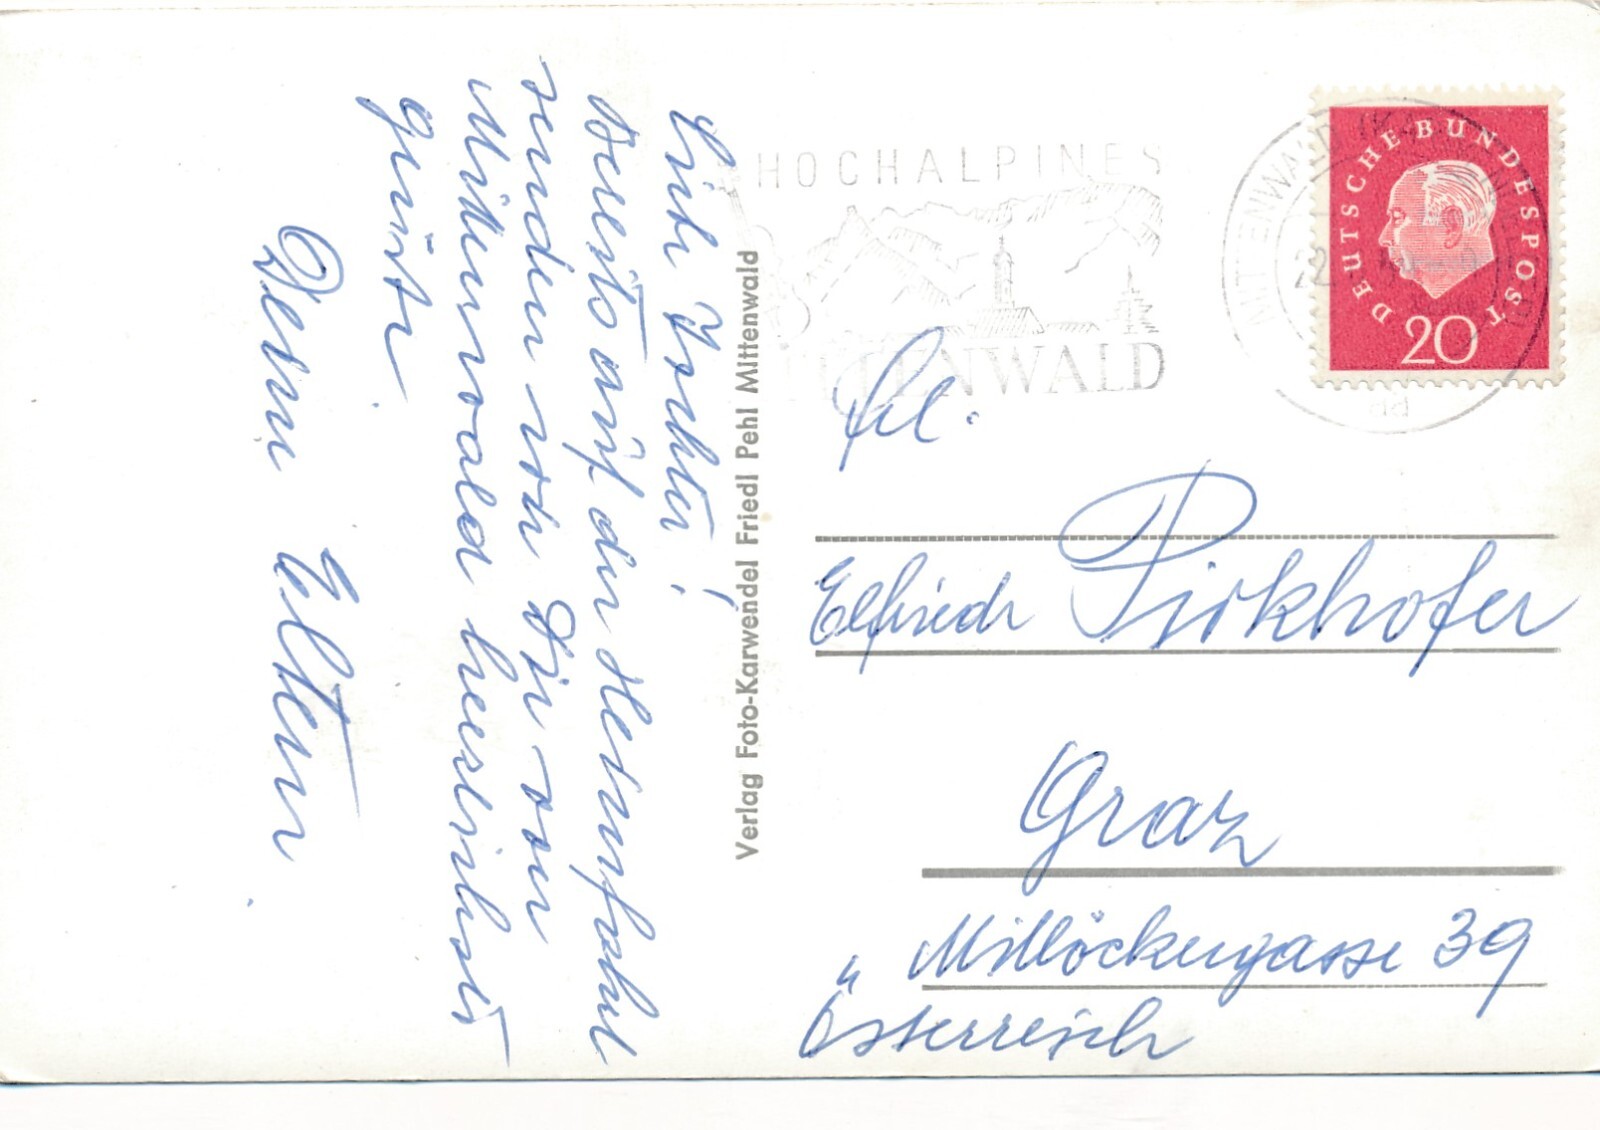 Liebe Tochter!
Bereits auf der Heimfahrt
senden wir Dir von
Mittenwald herzlichst
Grüße
Deine Eltern
Verlag Foto-Karwendel Friedl Pehl Mittenwald
HOCHALPINES
MITTENWALD
DEUTSCHE BUNDESPOST
20
MITTENWALD
Frl.
Elfriede Pirkhofer
Graz
Millöckergasse 39
Österreich